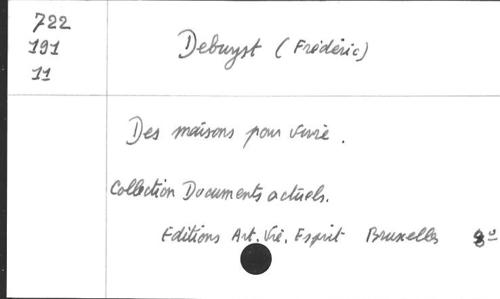 722
191
11
Debuyst (Frédéric)
Des maisons pour vivre.
Collection Documents actuels.
Editions Art. Vie. Esprit Bruxelles 8º